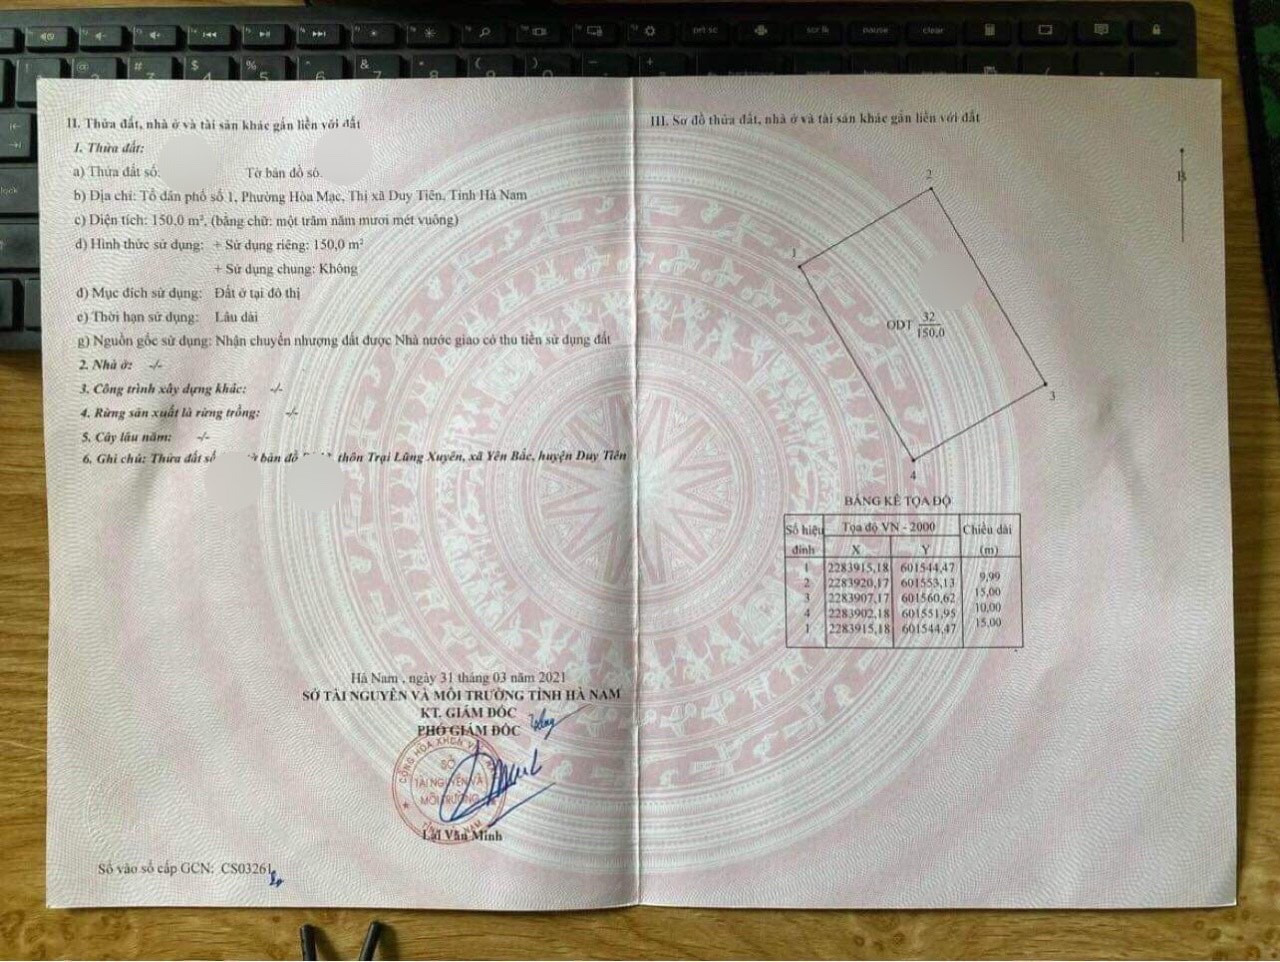 II. Thửa đất, nhà ở và tài sản khác gắn liền với đất
1. Thửa đất:
a) Thửa đất số: Tờ bản đồ số:
b) Địa chỉ: Tổ dân phố số 1, Phường Hòa Mạc, Thị xã Duy Tiên, Tỉnh Hà Nam
c) Diện tích: 150.0 m², (bằng chữ: một trăm năm mươi mét vuông)
d) Hình thức sử dụng: + Sử dụng riêng: 150,0 m²
+ Sử dụng chung: Không
đ) Mục đích sử dụng: Đất ở tại đô thị
e) Thời hạn sử dụng: Lâu dài
g) Nguồn gốc sử dụng: Nhận chuyển nhượng đất được Nhà nước giao có thu tiền sử dụng đất
2. Nhà ở: -/-
3. Công trình xây dựng khác: -/-
4. Rừng sản xuất là rừng trồng: -/-
5. Cây lâu năm: -/-
6. Ghi chú: Thửa đất số bản đồ thôn Trại Lũng Xuyên, xã Yên Bắc, huyện Duy Tiên
Hà Nam , ngày 31 tháng 03 năm 2021
SỞ TÀI NGUYÊN VÀ MÔI TRƯỜNG TỈNH HÀ NAM
KT. GIÁM ĐỐC
PHÓ GIÁM ĐỐC
SỞ
TÀI NGUYÊN VÀ
MÔI TRƯỜNG
Lại Văn Minh
Số vào sổ cấp GCN: CS03261
III. Sơ đồ thửa đất, nhà ở và tài sản khác gắn liền với đất
B
2
1
ODT 32
150,0
3
4
BẢNG KÊ TỌA ĐỘ
Số hiệu đỉnh Tọa độ VN - 2000 Chiều dài
X Y (m)
1 2283915,18 601544,47
9,99
2 2283920,17 601553,13
15,00
3 2283907,17 601560,62
10,00
4 2283902,18 601551,95
15,00
1 2283915,18 601544,47